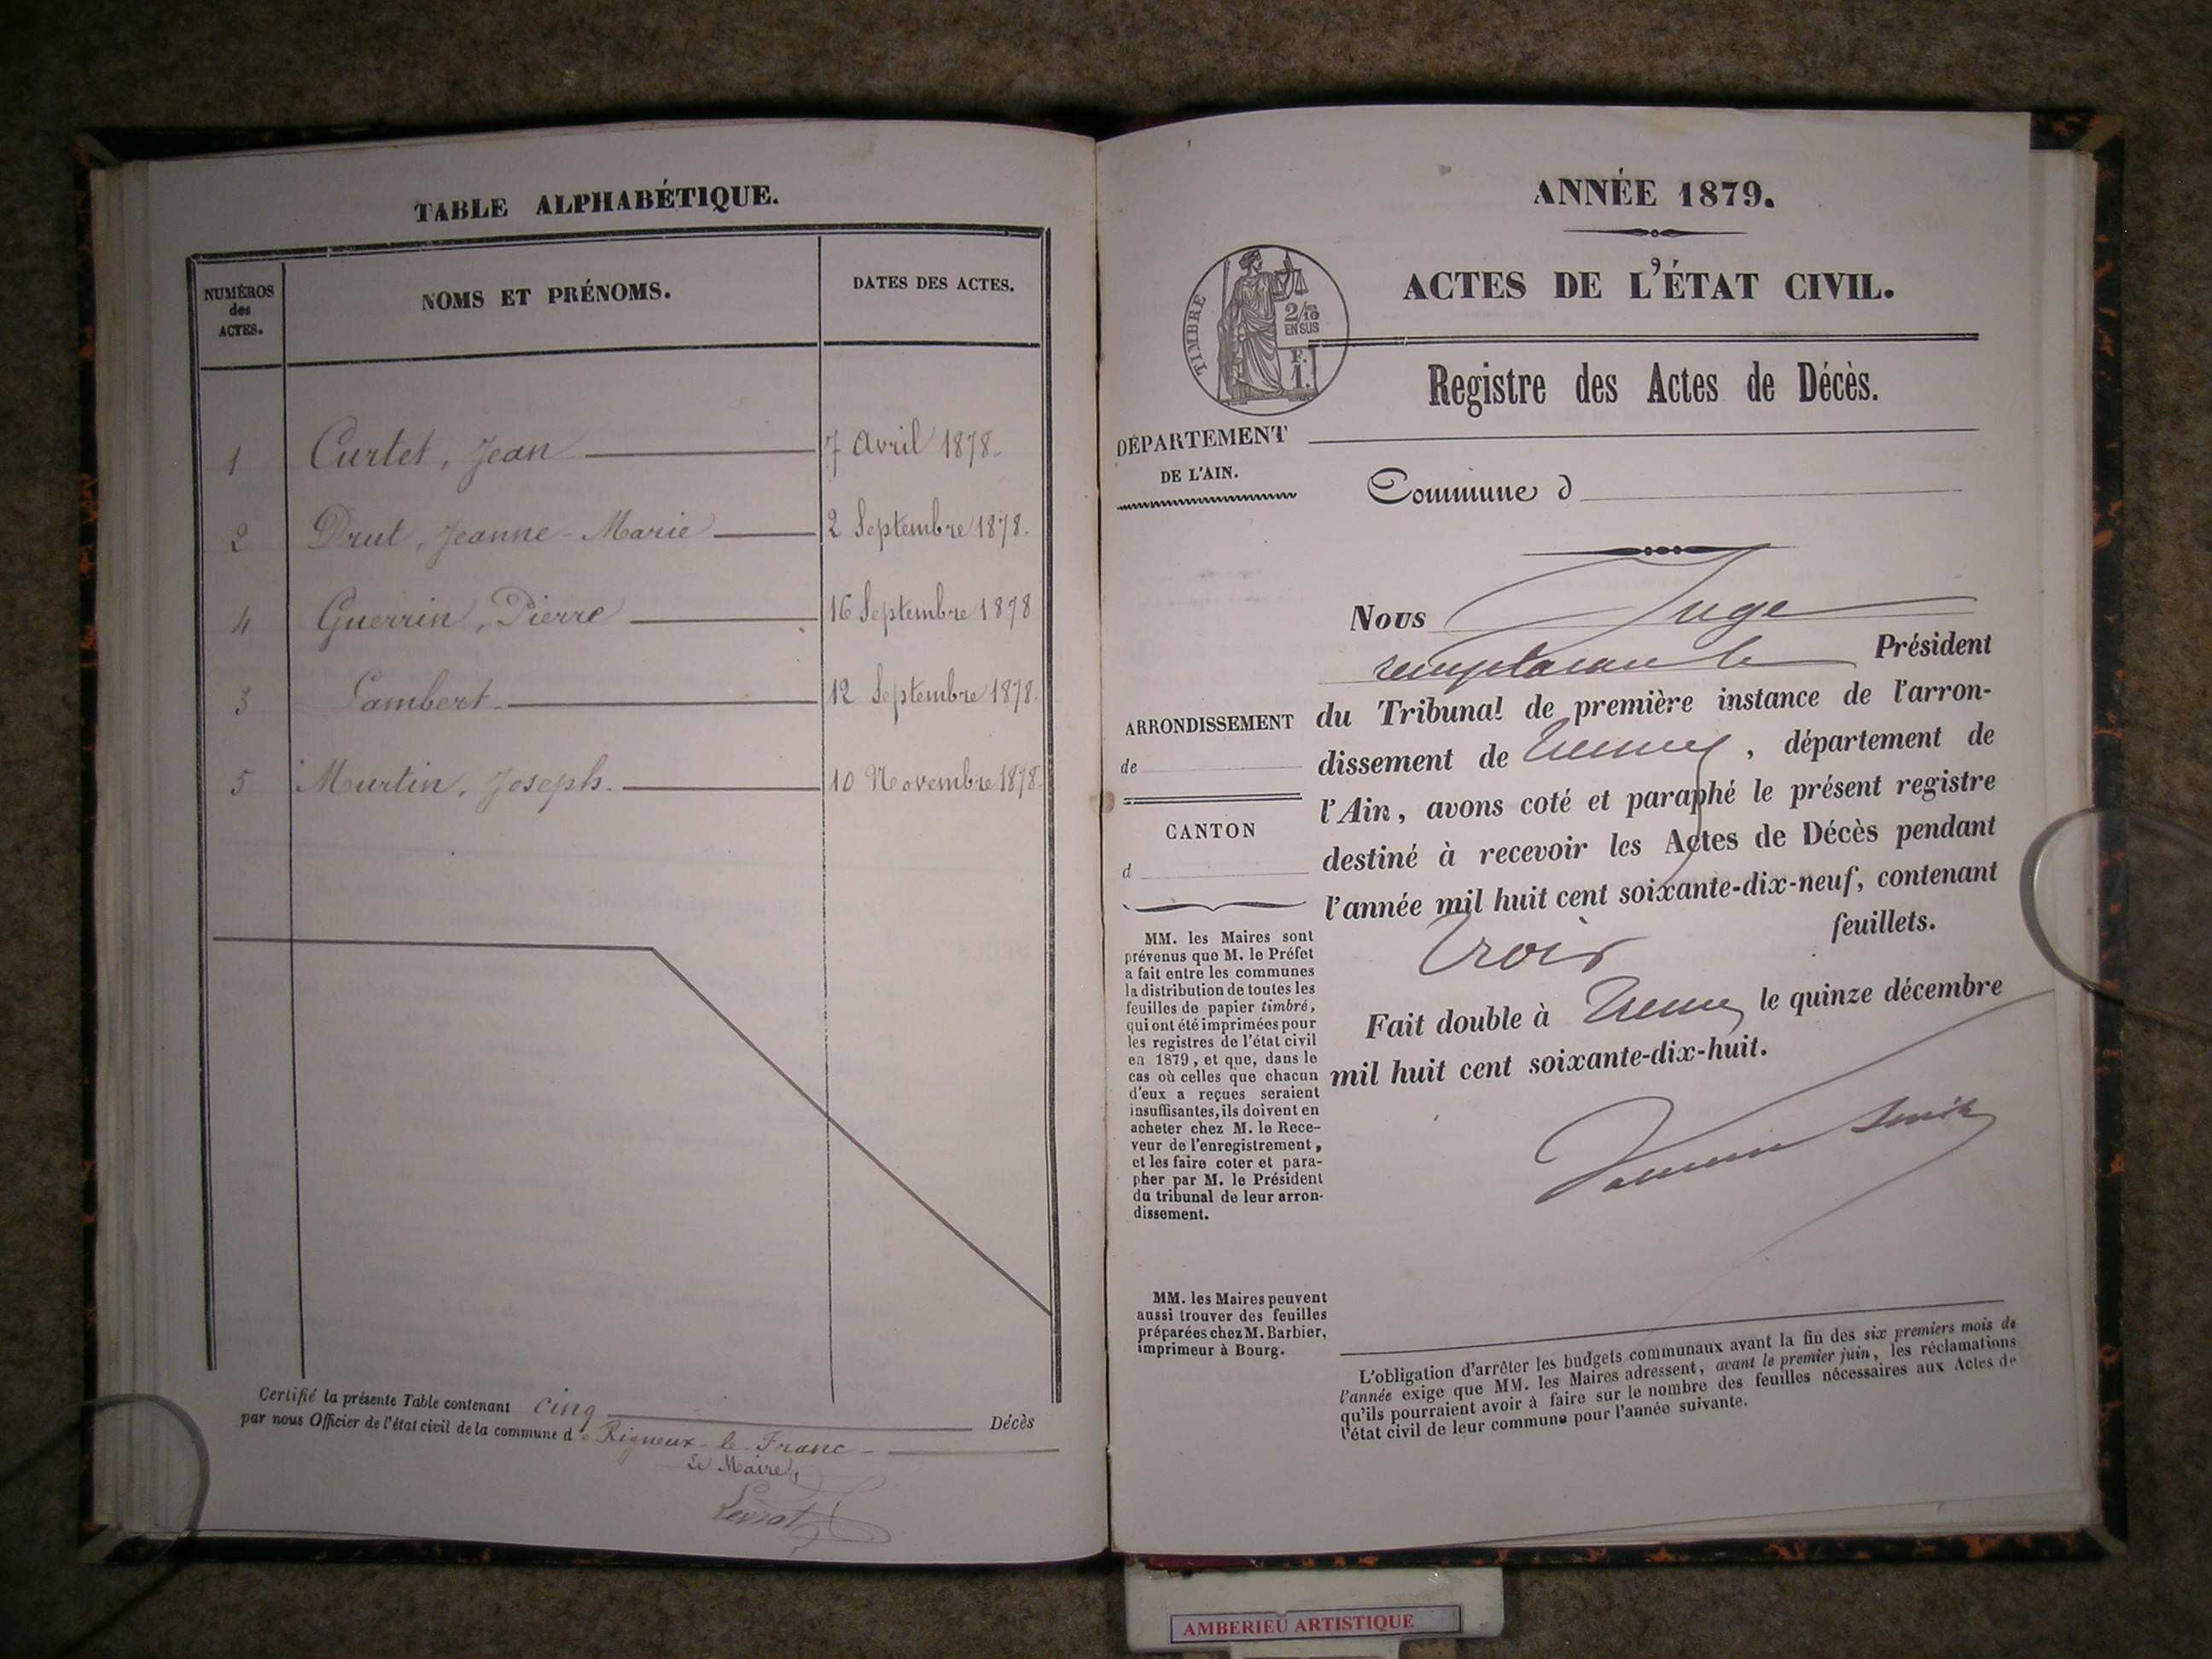 TABLE ALPHABÉTIQUE.
NUMÉROS
des
ACTES.
NOMS ET PRÉNOMS.
DATES DES ACTES.
1 Curtet, Jean 7 Avril 1878.
2 Drut, Jeanne-Marie 2 Septembre 1878.
4 Guerrin, Pierre 16 Septembre 1878
3 Lambert. 12 Septembre 1878.
5 Murtin, Joseph. 10 Novembre 1878.
Certifié la présente Table contenant cinq Décès
par nous Officier de l'état civil de la commune de Rigneux-le-Franc
Le Maire,
Levrat
ANNÉE 1879.
ACTES DE L'ÉTAT CIVIL.
TIMBRE
2/10
EN SUS
F.
1.
Registre des Actes de Décès.
DÉPARTEMENT
DE L'AIN.
Commune d
ARRONDISSEMENT
de
CANTON
d
MM. les Maires sont
prévenus que M. le Préfet
a fait entre les communes
la distribution de toutes les
feuilles de papier timbré,
qui ont été imprimées pour
les registres de l'état civil
en 1879, et que, dans le
cas où celles que chacun
d'eux a reçues seraient
insuffisantes, ils doivent en
acheter chez M. le Rece-
veur de l'enregistrement,
et les faire coter et para-
pher par M. le Président
du tribunal de leur arron-
dissement.
MM. les Maires peuvent
aussi trouver des feuilles
préparées chez M. Barbier,
imprimeur à Bourg.
Nous Juge
remplaçant le Président
du Tribunal de première instance de l'arron-
dissement de Trévoux, département de
l'Ain, avons coté et paraphé le présent registre
destiné à recevoir les Actes de Décès pendant
l'année mil huit cent soixante-dix-neuf, contenant
trois feuillets.
Fait double à Trévoux le quinze décembre
mil huit cent soixante-dix-huit.
L'obligation d'arrêter les budgets communaux avant la fin des six premiers mois de
l'année exige que MM. les Maires adressent, avant le premier juin, les réclamations
qu'ils pourraient avoir à faire sur le nombre des feuilles nécessaires aux Actes de
l'état civil de leur commune pour l'année suivante.
AMBERIEU ARTISTIQUE